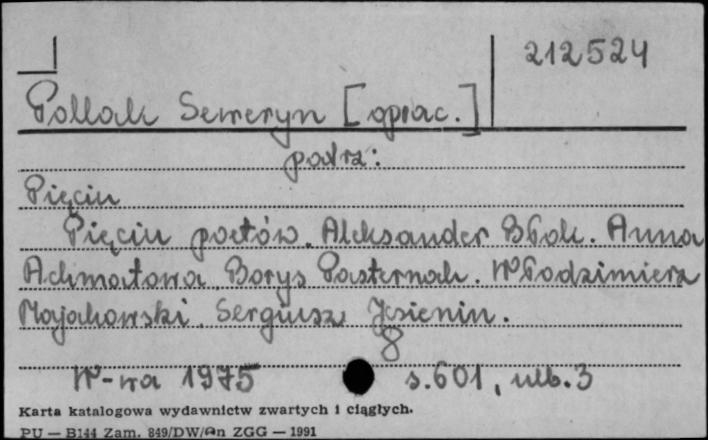 212524
Pollak Seweryn [oprac.]
patrz:
Pięciu
Pięciu poetów. Aleksander Błok. Anna
Achmatowa. Borys Pasternak. Włodzimierz
Majakowski. Sergiusz Jesienin.
8
W-wa 1975 s.601, nlb.3
Karta katalogowa wydawnictw zwartych i ciągłych.
PU — B144 Zam. 849/DW/ ZGG — 1991